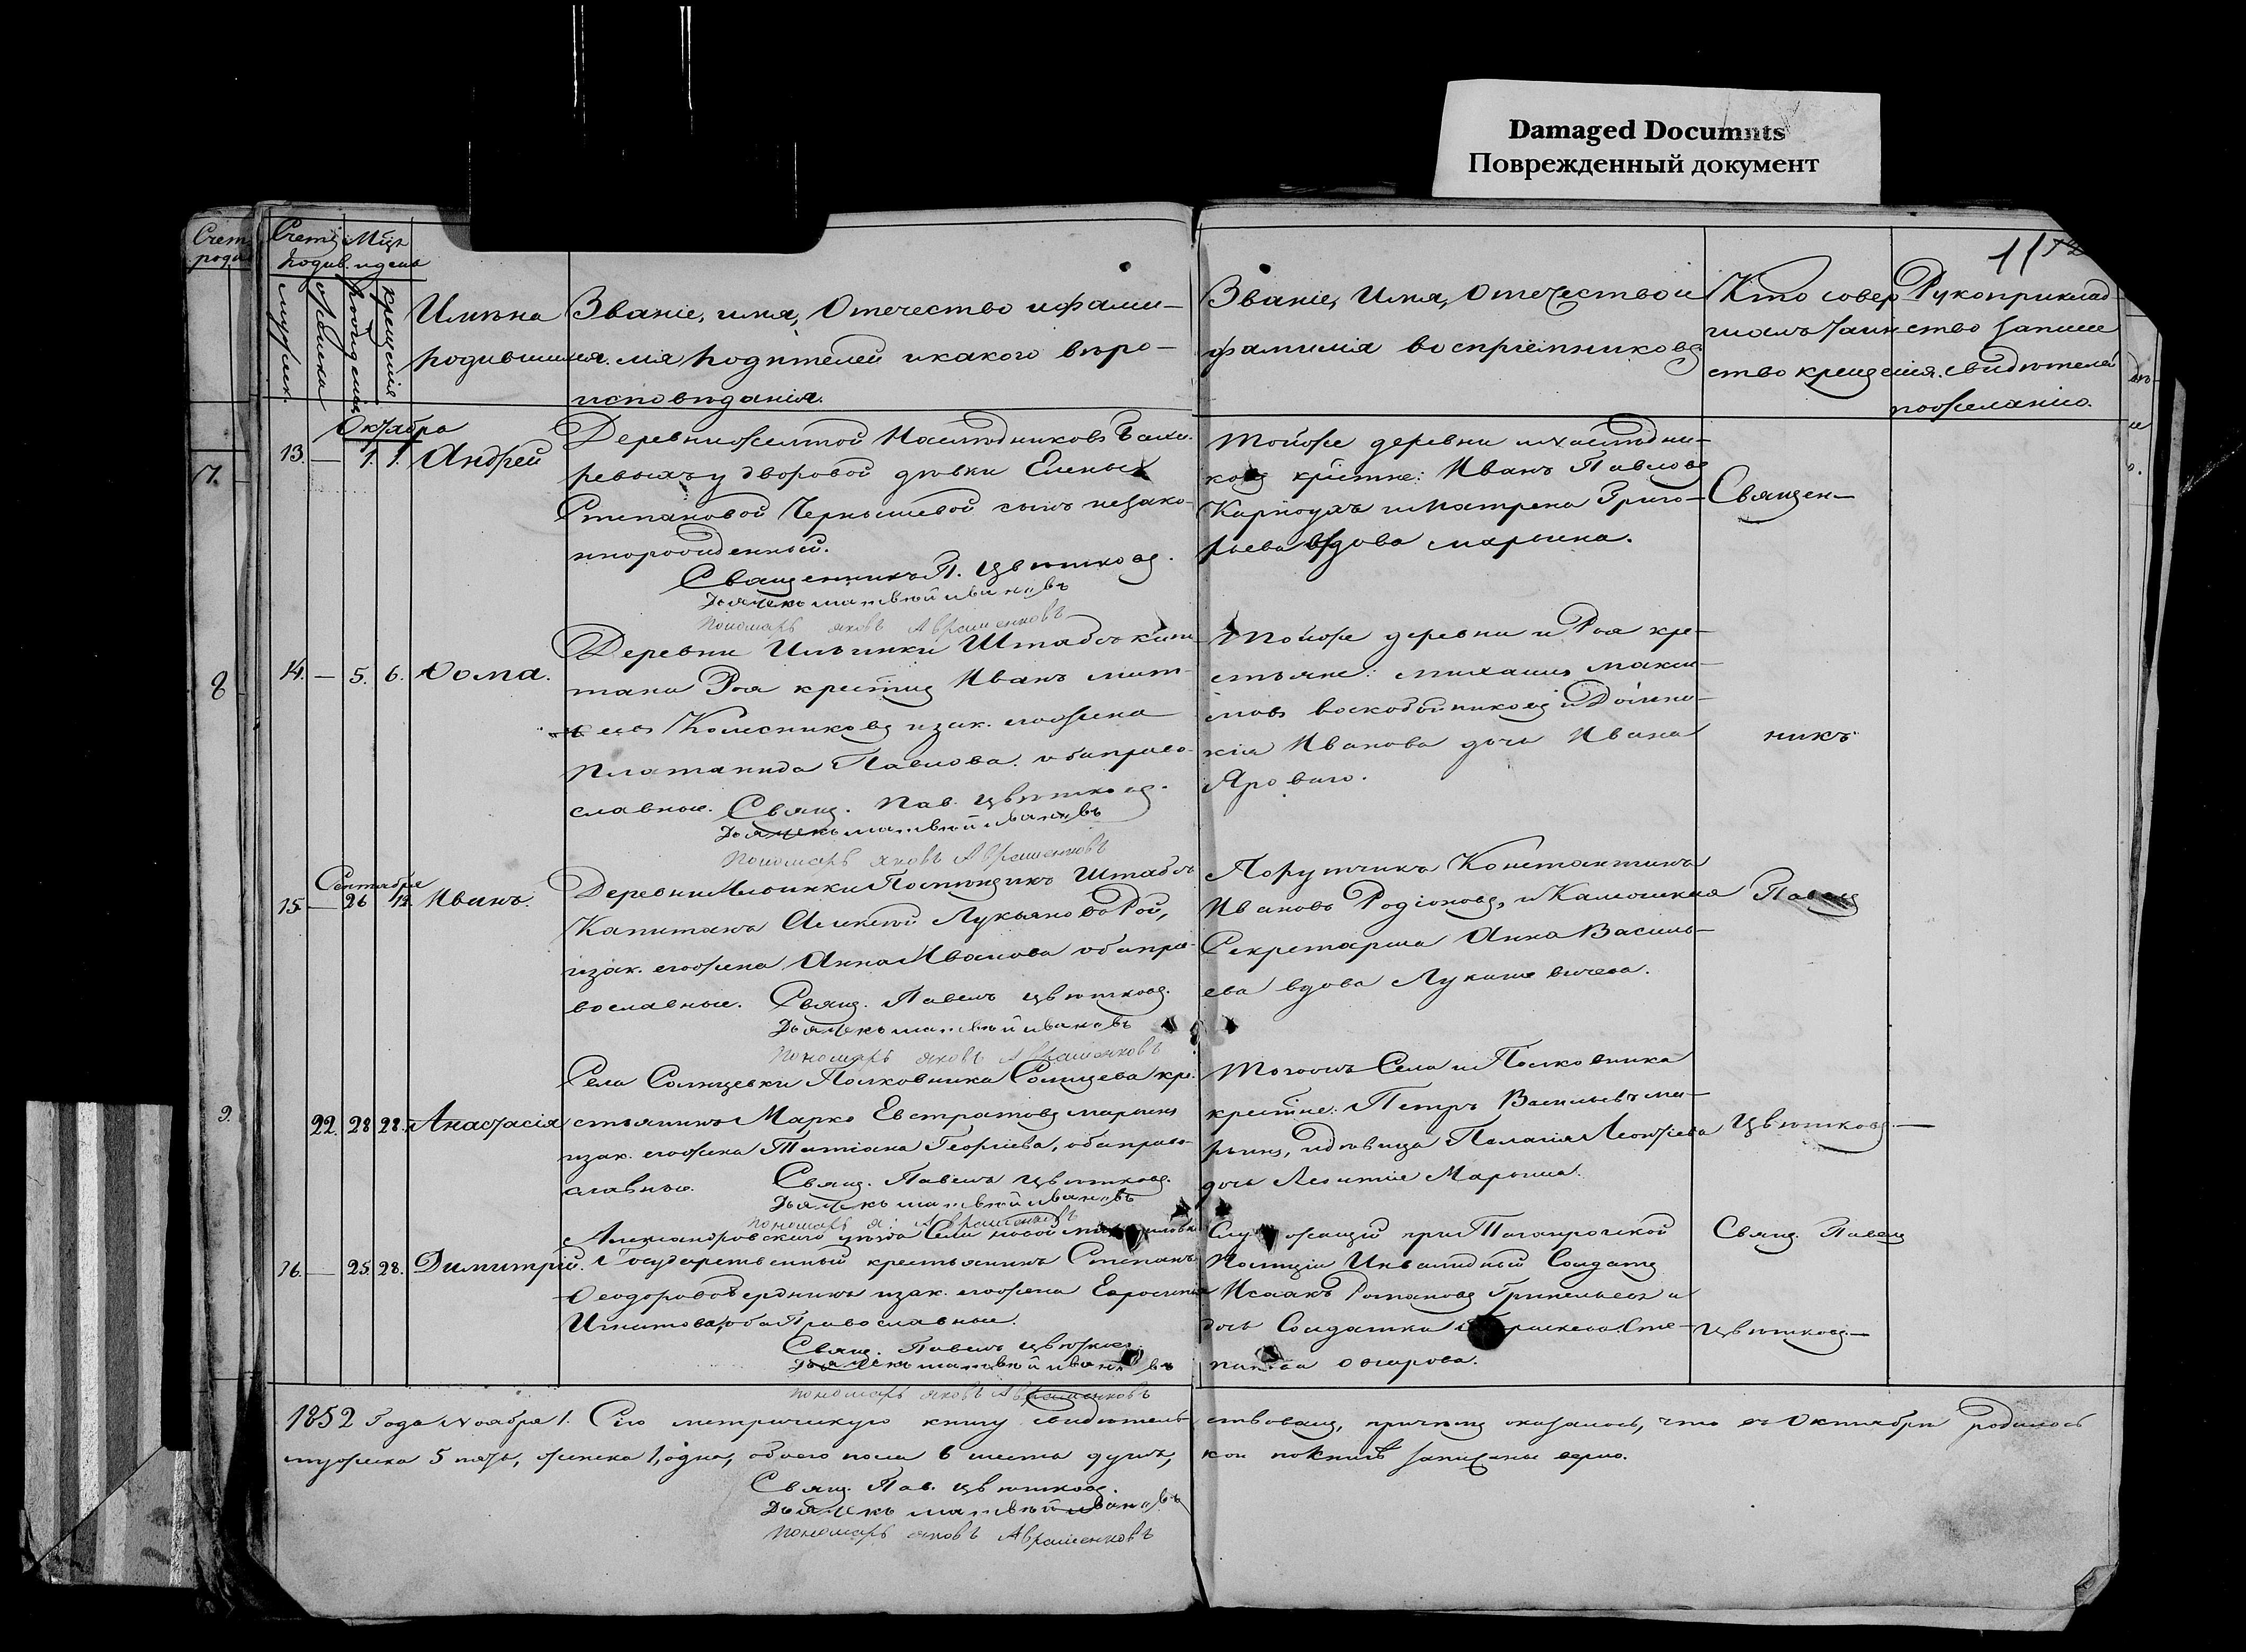 Damaged Documnts
Поврежденный документ
11
Счетъ
родив.
Мцъ
и день
мужеск.
женска
рожденія
крещенія
Имѣна
родившихся.
Званіе, имя, Отечество и фами-
лія родителей и какого вѣро-
исповѣданія.
Званіе, Имя, Отечество и
фамилія воспріемниковъ
Кто совер
шалъ таин
ство крещенія.
Рукоприклад-
ство записи
свидѣтелей
по желанію.
Октября
13. — 1. 1. Андрей
Деревни Желтой Наслѣдниковъ
ревыхъ у дворовой дѣвки Елены
Степановой Чернышевой сынъ незако-
ннорожденный.
Священникъ П. Цвѣтковъ.
Дьячекъ Матвѣй Ивановъ
Пономарь Яковъ Авраменковъ
Тойже деревни и наслѣдни-
ковъ крестне: Иванъ Павловъ
и Матрена Григо-
рьева вдова
Священ-
14. — 5. 6. Ѳома.
Деревни Ильинки Штабсъ капи
тана Роя крестнъ Иванъ
Колесниковъ и зак. его жена
Платанида Павлова. оба право-
славные. Свящ. Пав. Цвѣтковъ.
Дьячекъ Матвѣй Ивановъ
Пономарь Яковъ Авраменковъ
Тойже деревни и Роя кре-
стьяне: Михаилъ Макси-
мовъ Воскобойниковъ и Домни-
кія Иванова дочь Ивана
Яроваго.
никъ
Сентября
15. — 26 12. Иванъ.
Деревни Ильинки Помѣщикъ Штабсъ
Капитанъ Алексѣй Лукьяновъ Рой,
и зак. его жена Анна Иванова оба пра-
вославные. Свящ. Павелъ Цвѣтковъ.
Дьячекъ Матвѣй Ивановъ
Пономарь Яковъ Авраменковъ
Порутчикъ Константинъ
Ивановъ Родіоновъ, и
Секретарша Анна Василь-
ева вдова Лукашевичева.
Павелъ
22. 28 28. Анастасія
Села Солнцевки Полковника Солнцева кре-
стьянинъ Марко Евстратовъ
и зак. его жена Татіана Георгіева, оба право-
славные. Свящ. Павелъ Цвѣтковъ.
Дьячекъ Матвѣй Ивановъ
Пономарь Я: Авраменковъ
Тогожъ Села и Полковника
крестне: Петръ Васильевъ
и дѣвица Пелагія Леонтіева
дочь Леонтія
Цвѣтковъ.—
16. — 25 28. Димитрій.
Александровского уѣзда Села новой
Государственный крестьянинъ Степанъ
Ѳеодоровъ и зак. его жена Евросинія
Игнатова, оба Православные.
Свящ. Павелъ Цвѣтковъ.
Дьячекъ Матвѣй Ивановъ
Пономарь Яковъ Авраменковъ
Служащій при Таганрогской
Полиціи Инвалидный Солдатъ
Исаакъ Романовъ и
дочь Солдатка Сте-
панова
Свящ. Павелъ
Цвѣтковъ—
1852 Года Ноября 1. Сію метрическую книгу свидѣтель-
ствовалъ, причемъ оказалось, что въ Октябрѣ родилось
мужеска 5 пять, женска 1, одна, обоего пола 6 шесть душъ,
кои по книгѣ записаны верно.
Свящ. Пав. Цвѣтковъ.
Дьячекъ Матвѣй Ивановъ
Пономарь Яковъ Авраменковъ
7.
8
9.